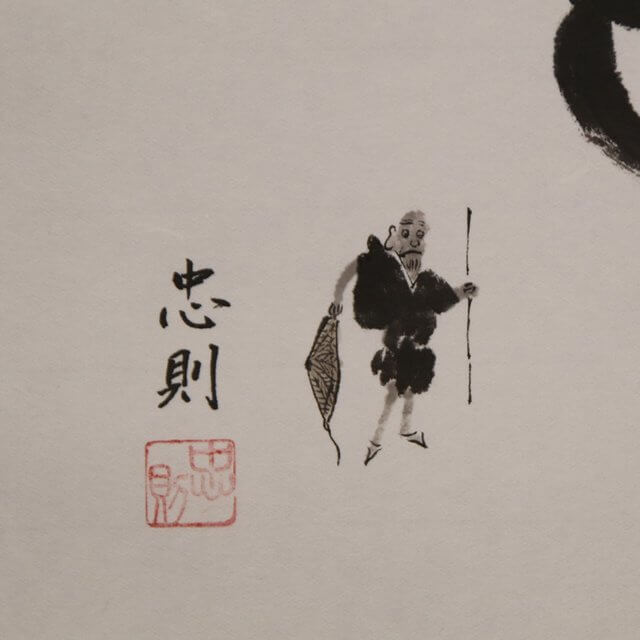 忠則
忠則